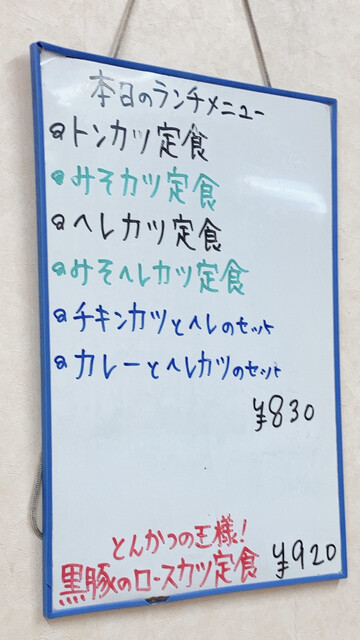 本日のランチメニュー
トンカツ定食
みそカツ定食
ヘレカツ定食
みそヘレカツ定食
チキンカツとヘレのセット
カレーとヘレカツのセット
¥830
とんかつの王様!
黒豚のロースカツ定食 ¥920